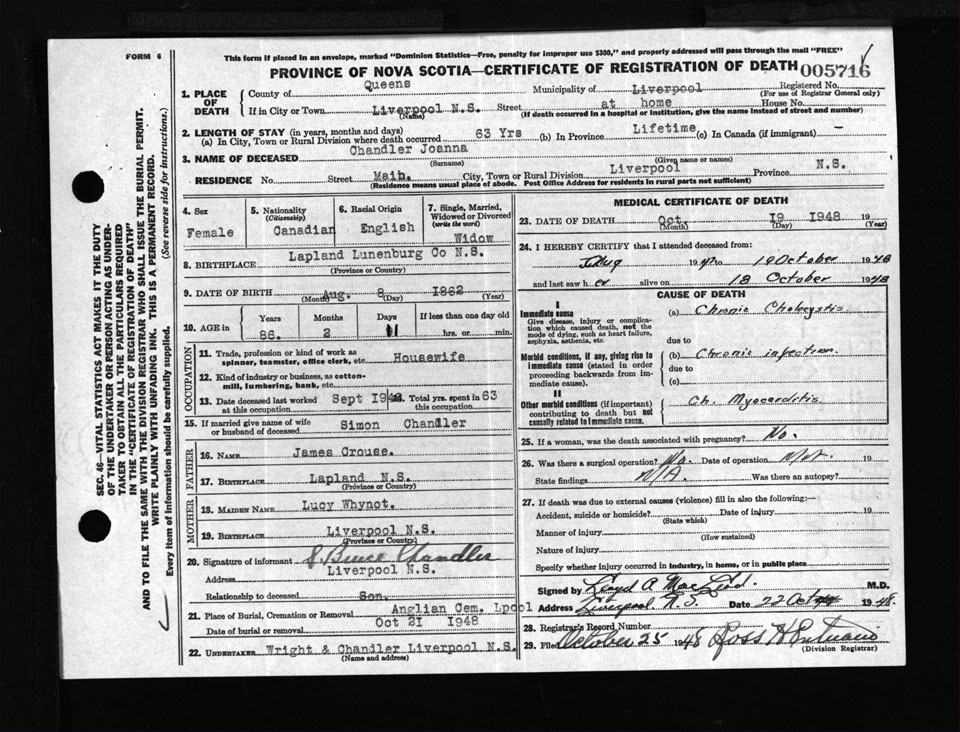 FORM 6
This form if placed in an envelope, marked "Dominion Statistics—Free, penalty for improper use $300," and properly addressed will pass through the mail "FREE"
PROVINCE OF NOVA SCOTIA—CERTIFICATE OF REGISTRATION OF DEATH 005716
1. PLACE OF DEATH
County of Queens Municipality of Liverpool Registered No.
(For use of Registrar General only)
If in City or Town Liverpool N.S. Street at home House No.
(Name) (If death occurred in a hospital or institution, give the name instead of street and number)
2. LENGTH OF STAY (in years, months and days)
(a) In City, Town or Rural Division where death occurred 63 Yrs (b) In Province Lifetime (c) In Canada (if immigrant) —
3. NAME OF DECEASED Chandler Joanna
(Surname) (Given name or names)
RESIDENCE No. Street Main. City, Town or Rural Division Liverpool Province N.S.
(Residence means usual place of abode. Post Office Address for residents in rural parts not sufficient)
4. Sex Female
5. Nationality (Citizenship) Canadian
6. Racial Origin English
7. Single, Married, Widowed or Divorced (write the word) Widow
8. BIRTHPLACE Lapland Lunenburg Co N.S.
(Province or Country)
9. DATE OF BIRTH Aug. 8 1862
(Month) (Day) (Year)
10. AGE in Years Months Days If less than one day old
86. 2 11 hrs. or min.
OCCUPATION
11. Trade, profession or kind of work as spinner, teamster, office clerk, etc. Housewife
12. Kind of industry or business, as cotton-mill, lumbering, bank, etc.
13. Date deceased last worked at this occupation Sept 1948. Total yrs. spent in this occupation 63
15. If married give name of wife or husband of deceased Simon Chandler
FATHER
16. NAME James Crouse.
17. BIRTHPLACE Lapland N.S.
(Province or Country)
MOTHER
18. MAIDEN NAME Lucy Whynot.
19. BIRTHPLACE Liverpool N.S.
(Province or Country)
20. Signature of informant S. Bruce Chandler
Address Liverpool N.S.
Relationship to deceased Son.
21. Place of Burial, Cremation or Removal Anglian Cem. Lpool
Date of burial or removal Oct 21 1948
22. UNDERTAKER Wright & Chandler Liverpool N.S.
(Name and address)
MEDICAL CERTIFICATE OF DEATH
23. DATE OF DEATH Oct. 19 1948 19
(Month) (Day) (Year)
24. I HEREBY CERTIFY that I attended deceased from:
19 to 19 October 1948
and last saw her alive on 18 October 1948
CAUSE OF DEATH
I
Immediate cause
Give disease, injury or complication which caused death, not the mode of dying, such as heart failure, asphyxia, asthenia, etc.
(a) Chronic Cholecystis
due to
Morbid conditions, if any, giving rise to immediate cause (stated in order proceeding backwards from immediate cause).
(b) Chronic infection.
due to
(c)
II
Other morbid conditions (if important) contributing to death but not causally related to immediate cause.
Ch. Myocarditis
25. If a woman, was the death associated with pregnancy? No.
26. Was there a surgical operation? No. Date of operation 19
State findings N/A Was there an autopsy?
27. If death was due to external causes (violence) fill in also the following:
Accident, suicide or homicide? Date of injury 19
(State which)
Manner of injury
(How sustained)
Nature of injury
Specify whether injury occurred in industry, in home, or in public place
Signed by Lloyd A. MacLeod. M.D.
Address Liverpool N.S. Date 22 Oct 1948.
28. Registrar's Record Number
29. Filed October 25 1948 Ross H
(Division Registrar)
SEC. 46—VITAL STATISTICS ACT MAKES IT THE DUTY
OF THE UNDERTAKER OR PERSON ACTING AS UNDER-
TAKER TO OBTAIN ALL THE PARTICULARS REQUIRED
IN THE "CERTIFICATE OF REGISTRATION OF DEATH"
AND TO FILE THE SAME WITH THE DIVISION REGISTRAR WHO SHALL ISSUE THE BURIAL PERMIT.
WRITE PLAINLY WITH UNFADING INK. THIS IS A PERMANENT RECORD.
Every item of information should be carefully supplied. (See reverse side for instructions.)